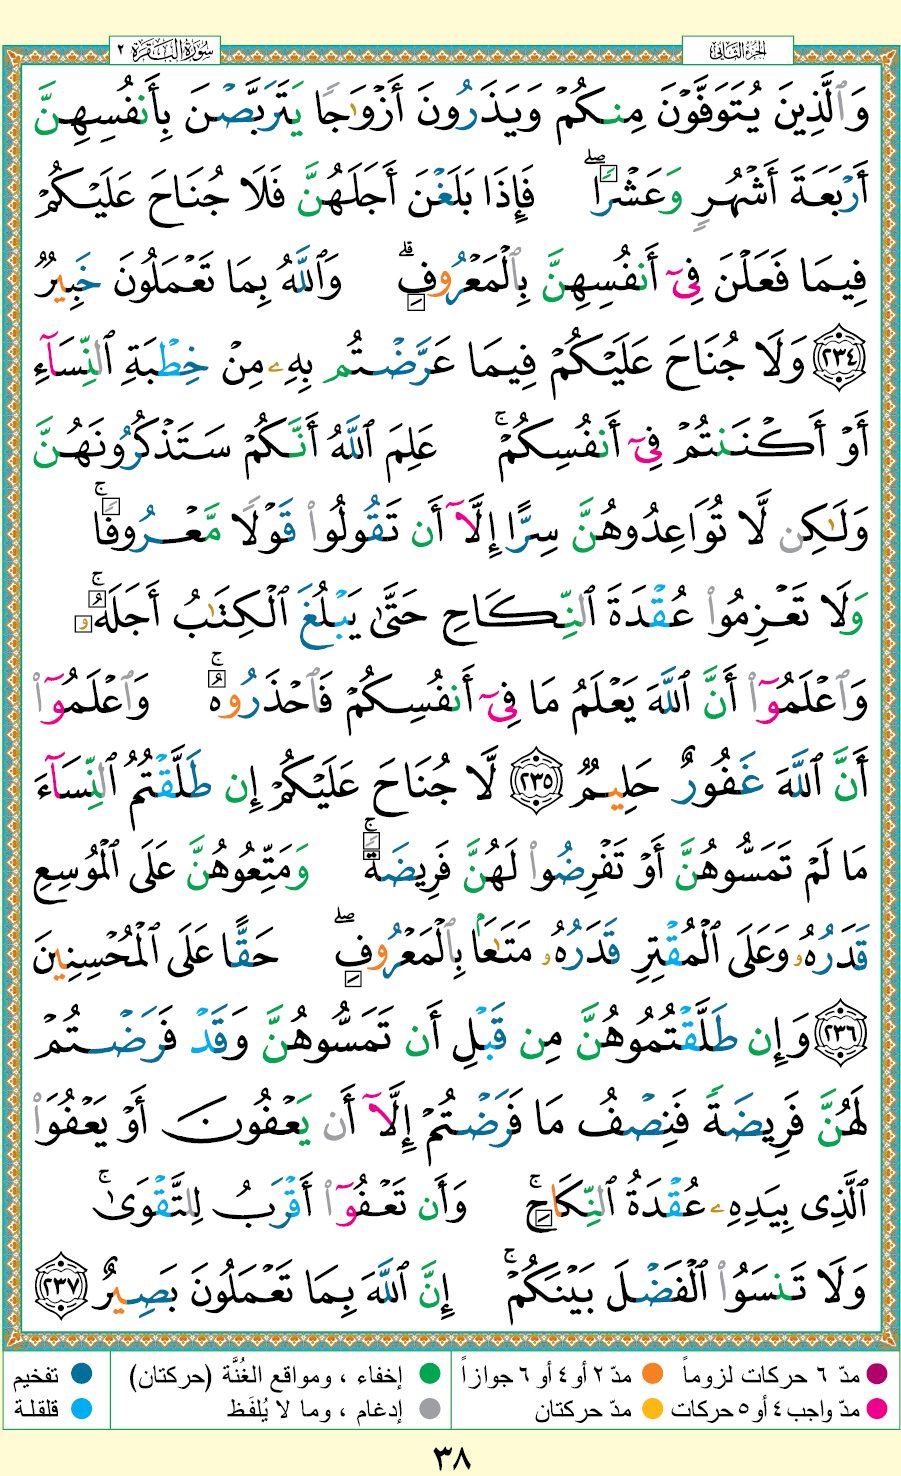 الجزء الثاني
سورة البقرة ٢
وَٱلَّذِينَ يُتَوَفَّوْنَ مِنكُمْ وَيَذَرُونَ أَزْوَٰجًا يَتَرَبَّصْنَ بِأَنفُسِهِنَّ
أَرْبَعَةَ أَشْهُرٍ وَعَشْرًا ۖ فَإِذَا بَلَغْنَ أَجَلَهُنَّ فَلَا جُنَاحَ عَلَيْكُمْ
فِيمَا فَعَلْنَ فِىٓ أَنفُسِهِنَّ بِٱلْمَعْرُوفِ ۗ وَٱللَّهُ بِمَا تَعْمَلُونَ خَبِيرٌ
٢٣٤ وَلَا جُنَاحَ عَلَيْكُمْ فِيمَا عَرَّضْتُم بِهِۦ مِنْ خِطْبَةِ ٱلنِّسَآءِ
أَوْ أَكْنَنتُمْ فِىٓ أَنفُسِكُمْ ۚ عَلِمَ ٱللَّهُ أَنَّكُمْ سَتَذْكُرُونَهُنَّ
وَلَٰكِن لَّا تُوَاعِدُوهُنَّ سِرًّا إِلَّآ أَن تَقُولُوا۟ قَوْلًا مَّعْرُوفًا ۚ
وَلَا تَعْزِمُوا۟ عُقْدَةَ ٱلنِّكَاحِ حَتَّىٰ يَبْلُغَ ٱلْكِتَٰبُ أَجَلَهُۥ ۚ
وَٱعْلَمُوٓا۟ أَنَّ ٱللَّهَ يَعْلَمُ مَا فِىٓ أَنفُسِكُمْ فَٱحْذَرُوهُ ۚ وَٱعْلَمُوٓا۟
أَنَّ ٱللَّهَ غَفُورٌ حَلِيمٌ ٢٣٥ لَّا جُنَاحَ عَلَيْكُمْ إِن طَلَّقْتُمُ ٱلنِّسَآءَ
مَا لَمْ تَمَسُّوهُنَّ أَوْ تَفْرِضُوا۟ لَهُنَّ فَرِيضَةً ۚ وَمَتِّعُوهُنَّ عَلَى ٱلْمُوسِعِ
قَدَرُهُۥ وَعَلَى ٱلْمُقْتِرِ قَدَرُهُۥ مَتَٰعًۢا بِٱلْمَعْرُوفِ ۖ حَقًّا عَلَى ٱلْمُحْسِنِينَ
٢٣٦ وَإِن طَلَّقْتُمُوهُنَّ مِن قَبْلِ أَن تَمَسُّوهُنَّ وَقَدْ فَرَضْتُمْ
لَهُنَّ فَرِيضَةً فَنِصْفُ مَا فَرَضْتُمْ إِلَّآ أَن يَعْفُونَ أَوْ يَعْفُوَا۟
ٱلَّذِى بِيَدِهِۦ عُقْدَةُ ٱلنِّكَاحِ ۚ وَأَن تَعْفُوٓا۟ أَقْرَبُ لِلتَّقْوَىٰ ۚ
وَلَا تَنسَوُا۟ ٱلْفَضْلَ بَيْنَكُمْ ۚ إِنَّ ٱللَّهَ بِمَا تَعْمَلُونَ بَصِيرٌ ٢٣٧
مدّ ٦ حركات لزوماً مدّ ٢ أو ٤ أو ٦ جوازاً إخفاء ، ومواقع الغُنَّة (حركتان) تفخيم
مدّ واجب ٤ أو ٥ حركات مدّ حركتان إدغام ، وما لا يُلفَظ قلقلة
٣٨